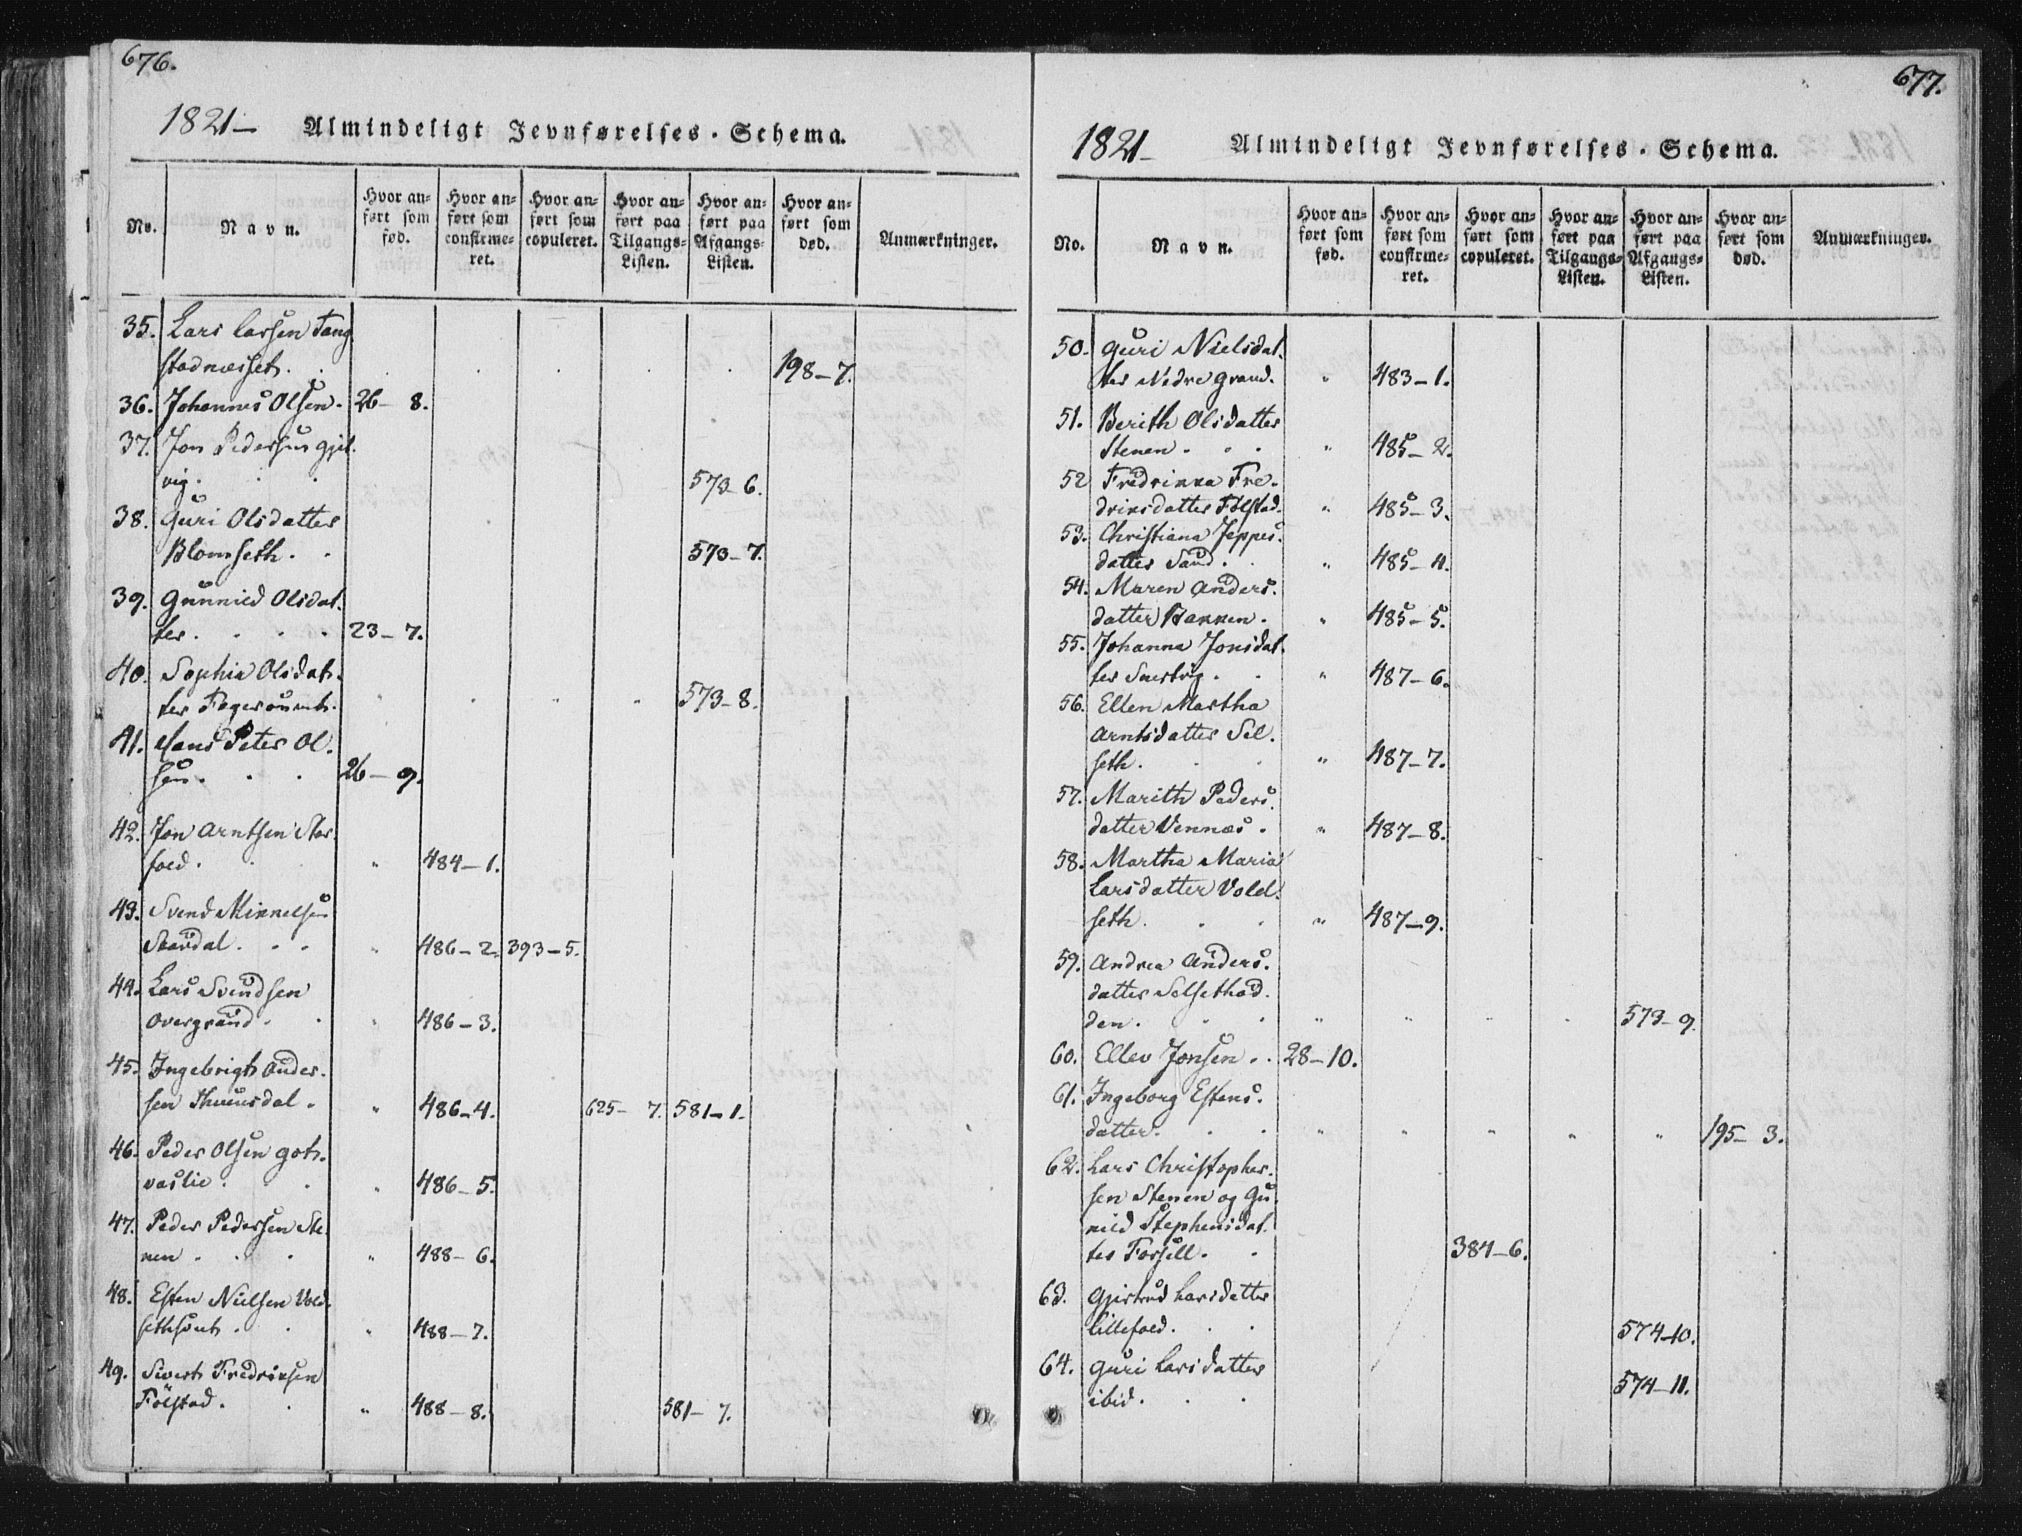 676.
1821– Almindeligt Jevnførelses-Schema.
No. Navn. Hvor anført som fød. Hvor anført som confirmeret. Hvor anført som copuleret. Hvor anført paa Tilgangs-Listen. Hvor anført paa Afgangs-Listen. Hvor anført som død. Anmærkninger.
35. Lars Larsen Tang
stadnæsset. 198–7.
36. Johannes Olsen. 26–8.
37. Jon Pedersen Gjel
vig. 573–6.
38. Guri Olsdatter
Blomseth. 573–7.
39. Gunnild Olsdat.
ter. 23–7.
40. Sophia Olsdat.
ter 573–8.
41. Hans Peter Ol.
sen. 26–9.
42. Jon Arntsen Stor
foed. " 484–1.
43. Svend Mikkelsen
" 486–2. 393–5.
44. Lars Svendsen
Overgrand. " 486–3.
45. Ingebrigt Ander.
sen " 486–4. 625–7. 581–1.
46. Peder Olsen Got.
vaslie. " 486–5.
47. Peder Pedersen Ste.
nen. " 488–6.
48. Esten Nielsen Vold.
" 488–7.
49. Sivert Fredriksen
Følstad. " 488–8. 581–7.
677.
1821– Almindeligt Jevnførelses-Schema.
No. Navn. Hvor anført som fød. Hvor anført som confirmeret. Hvor anført som copuleret. Hvor anført paa Tilgangs-Listen. Hvor anført paa Afgangs-Listen. Hvor anført som død. Anmærkninger.
50. Guri Nielsdat.
ter Nedre Grand. " 483–1.
51. Berith Olsdatter
Stenen. " 485–2.
52 Fredrikka Fre.
driksdatter Følstad. " 485–3.
53. Christiana Jeppes.
datter Sand. " 485–4.
54. Maren Anders.
datter Bakken. " 485–5.
55. Johanna Jonsdat.
ter " 487–6.
56. Ellen Martha
Arntsdatter Sel.
seth. " 487–7.
57. Marith Peders.
datter Vennas. " 487–8.
58. Martha Maria
Larsdatter Vold.
seth. " 487–9.
59. Andrea Anders.
datter Selsethød.
den. " " " " 573–9.
60. Ellev Jonsen. 28–10.
61. Ingeborg Estens.
datter. " " " " " 195–3.
62. Lars Christopher.
sen Stenen og Gu
nild Stephensdat.
ter Forsell. 384–6.
63. Gjertrud Larsdatter
Lillefoed. 574–10.
64. Guri Larsdatter
ibid. 574–11.